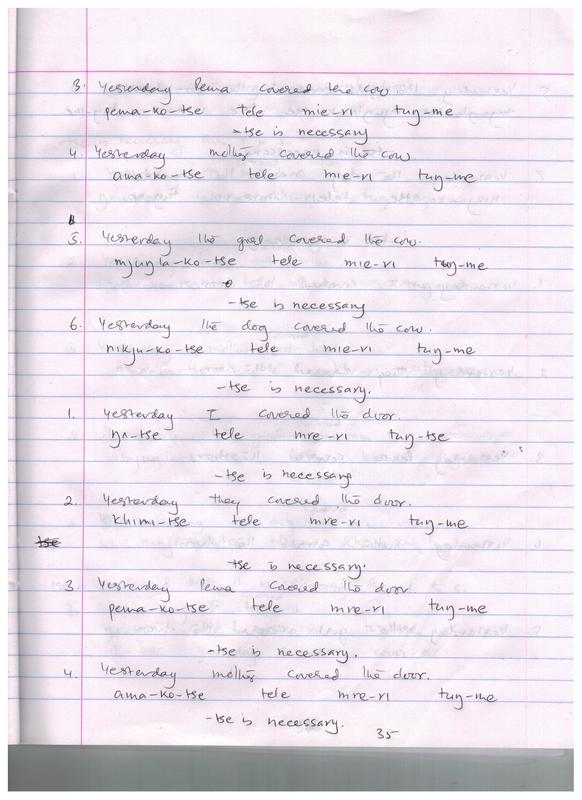 3. Yesterday Pema covered the cow
pema-ko-tse tele mie-ri tuŋ-me
-tse is necessary
4. Yesterday mother covered the cow.
ama-ko-tse tele mie-ri tuŋ-me
5. Yesterday the girl covered the cow.
mjuŋla-ko-tse tele mie-ri tuŋ-me
-tse is necessary
6. Yesterday the dog covered the cow.
nikju-ko-tse tele mie-ri tuŋ-me
-tse is necessary.
1. Yesterday I covered the door.
ŋʌ-tse tele mre-ri tuŋ-tse
-tse is necessary
2. Yesterday they covered the door.
khimi-tse tele mre-ri tuŋ-me
tse is necessary.
3. Yesterday Pema covered the door
pema-ko-tse tele mre-ri tuŋ-me
-tse is necessary.
4. Yesterday mother covered the door.
ama-ko-tse tele mre-ri tuŋ-me
-tse is necessary.
35